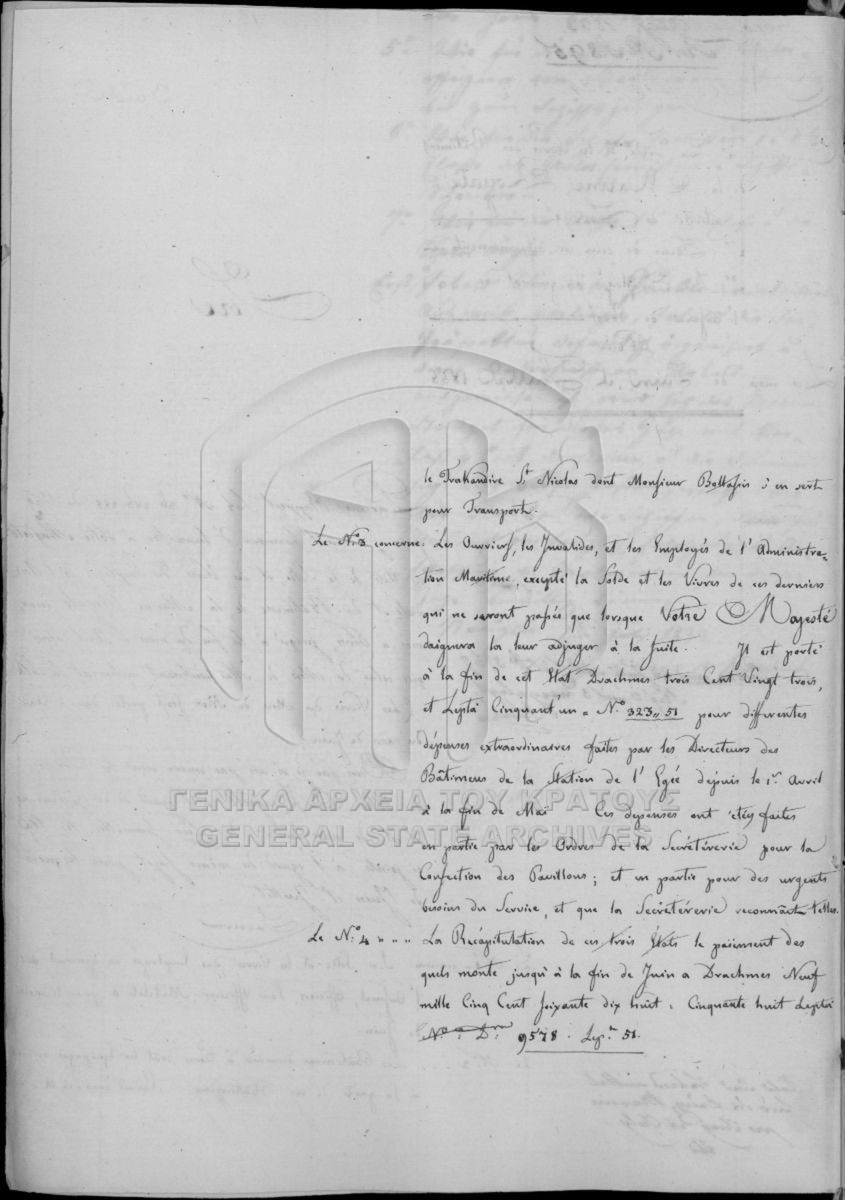 le Trakandire St Nicolas dont Monsieur Bottasis s'en sert
pour Transport.
Le No 3 concerne: Les Ouvriers, les Invalides, et les Employés de l'Administra=
tion Maritime, excepté la Solde et les Vivres de ces derniers
qui ne seront passés que lorsque Votre Majesté
daignera la leur adjuger à la Suite. Il est porté
à la fin de cet Etat Drachmes trois Cent Vingt trois,
et Lepta Cinquant'un = No 323,, 51 pour differentes
dépenses extraordinaires faites par les Directeurs des
Bâtimens de la Station de l'Egée depuis le 1er Avril
à la fin de Mai Ces depenses ont étés faites
en partie par les Ordres de la Secrétérerie pour la
Confection des Pavillons; et en partie pour des urgents
besoins du Service, et que la Secrétérerie reconnaît telles.
Le No 4 " " " La Recapitulation de ces trois Etats le paiement des
quels monte jusqu'à la fin de Juin a Drachmes Neuf
mille Cinq Cent soixante dix huit : Cinquante huit Lepta
No = Dr: 9578 . Lepn 51.
ΓΕΝΙΚΑ ΑΡΧΕΙΑ ΤΟΥ ΚΡΑΤΟΥΣ
GENERAL STATE ARCHIVES